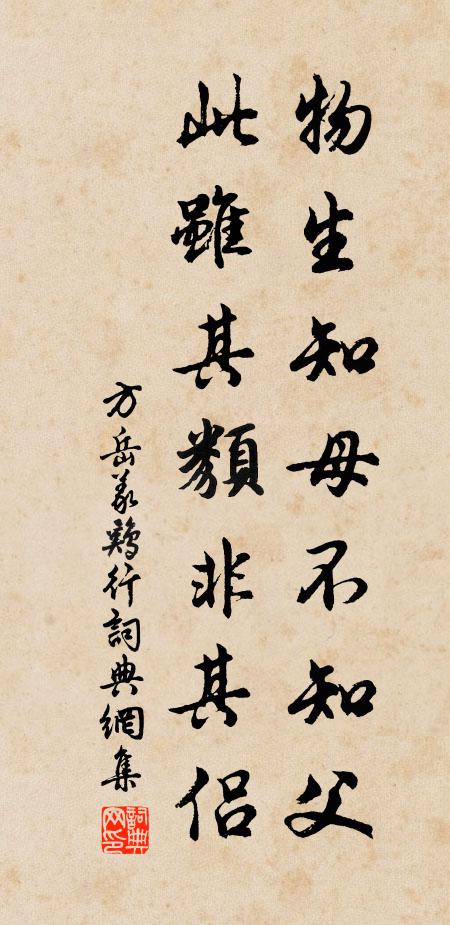 物生知母不知父
此雖其類非其侣
方岳義鶏行詞典網集
詞典网印